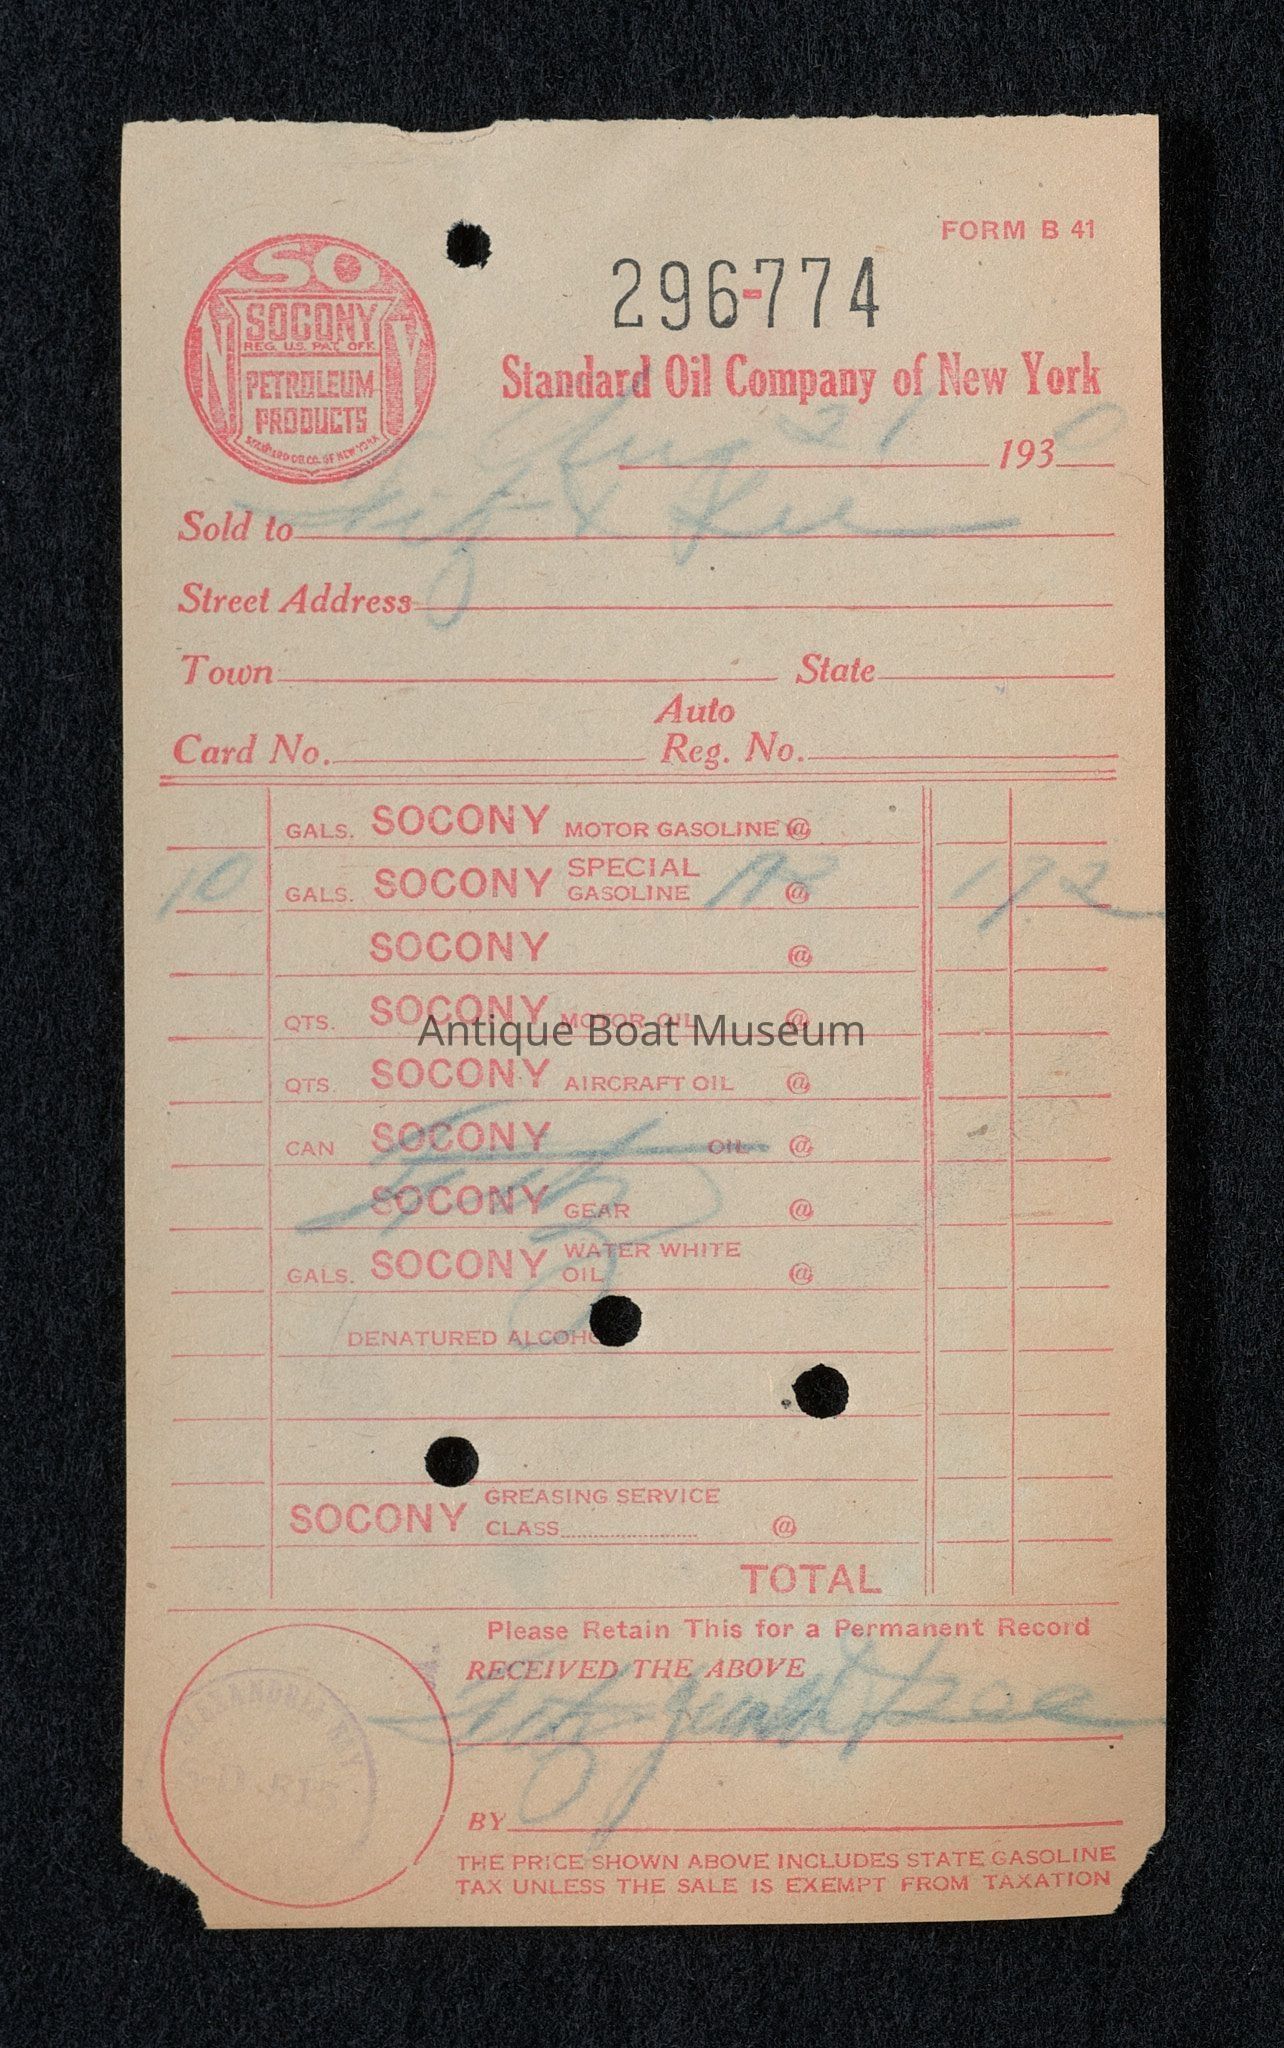 FORM B 41
296-774
SO
NY
SOCONY
REG. U.S. PAT. OFF.
PETROLEUM
PRODUCTS
STANDARD OIL CO. OF NEW YORK
Standard Oil Company of New York
Aug 21 1930
Sold to
Street Address
Town State
Auto
Card No. Reg. No.
GALS. SOCONY MOTOR GASOLINE @
10 GALS. SOCONY SPECIAL GASOLINE @ 1 72
SOCONY @
QTS. SOCONY MOTOR OIL @
Antique Boat Museum
QTS. SOCONY AIRCRAFT OIL @
CAN SOCONY OIL @
SOCONY GEAR @
GALS. SOCONY WATER WHITE OIL @
DENATURED ALCOHO
SOCONY GREASING SERVICE
CLASS @
TOTAL
Please Retain This for a Permanent Record
RECEIVED THE ABOVE
ALEXANDRIA BAY
BY
THE PRICE SHOWN ABOVE INCLUDES STATE GASOLINE
TAX UNLESS THE SALE IS EXEMPT FROM TAXATION